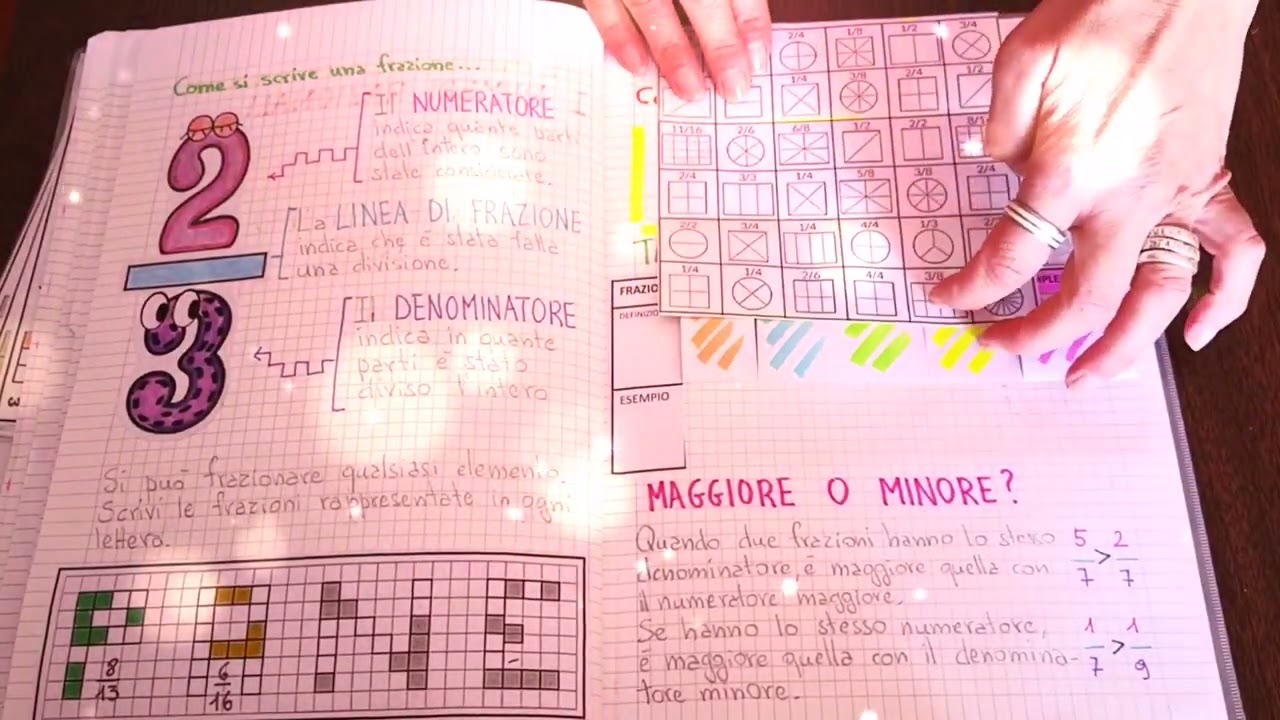 Come si scrive una frazione...
2
3
Il NUMERATORE
indica quante parti
dell'intero sono
state considerate.
La LINEA DI FRAZIONE
indica che è stata fatta
una divisione.
Il DENOMINATORE
indica in quante
parti è stato
diviso l'intero
Si può frazionare qualsiasi elemento.
Scrivi le frazioni rappresentate in ogni
lettera.
8/13
6/16
2/4 1/8 1/2 3/4
1/4 3/8 2/4 1/2
11/16 2/6 6/8 1/2 2/2
2/4 3/3 1/4 5/8 3/8 2/4
2/2 3/4 1/4 4/4 1/3
1/4 1/4 2/6 4/4 3/8
FRAZIO
DEFINIZIO
ESEMPIO
MAGGIORE O MINORE?
Quando due frazioni hanno lo stesso 5/7 > 2/7
denominatore, è maggiore quella con
il numeratore maggiore.
Se hanno lo stesso numeratore, 1/7 > 1/9
è maggiore quella con il denomina-
tore minore.